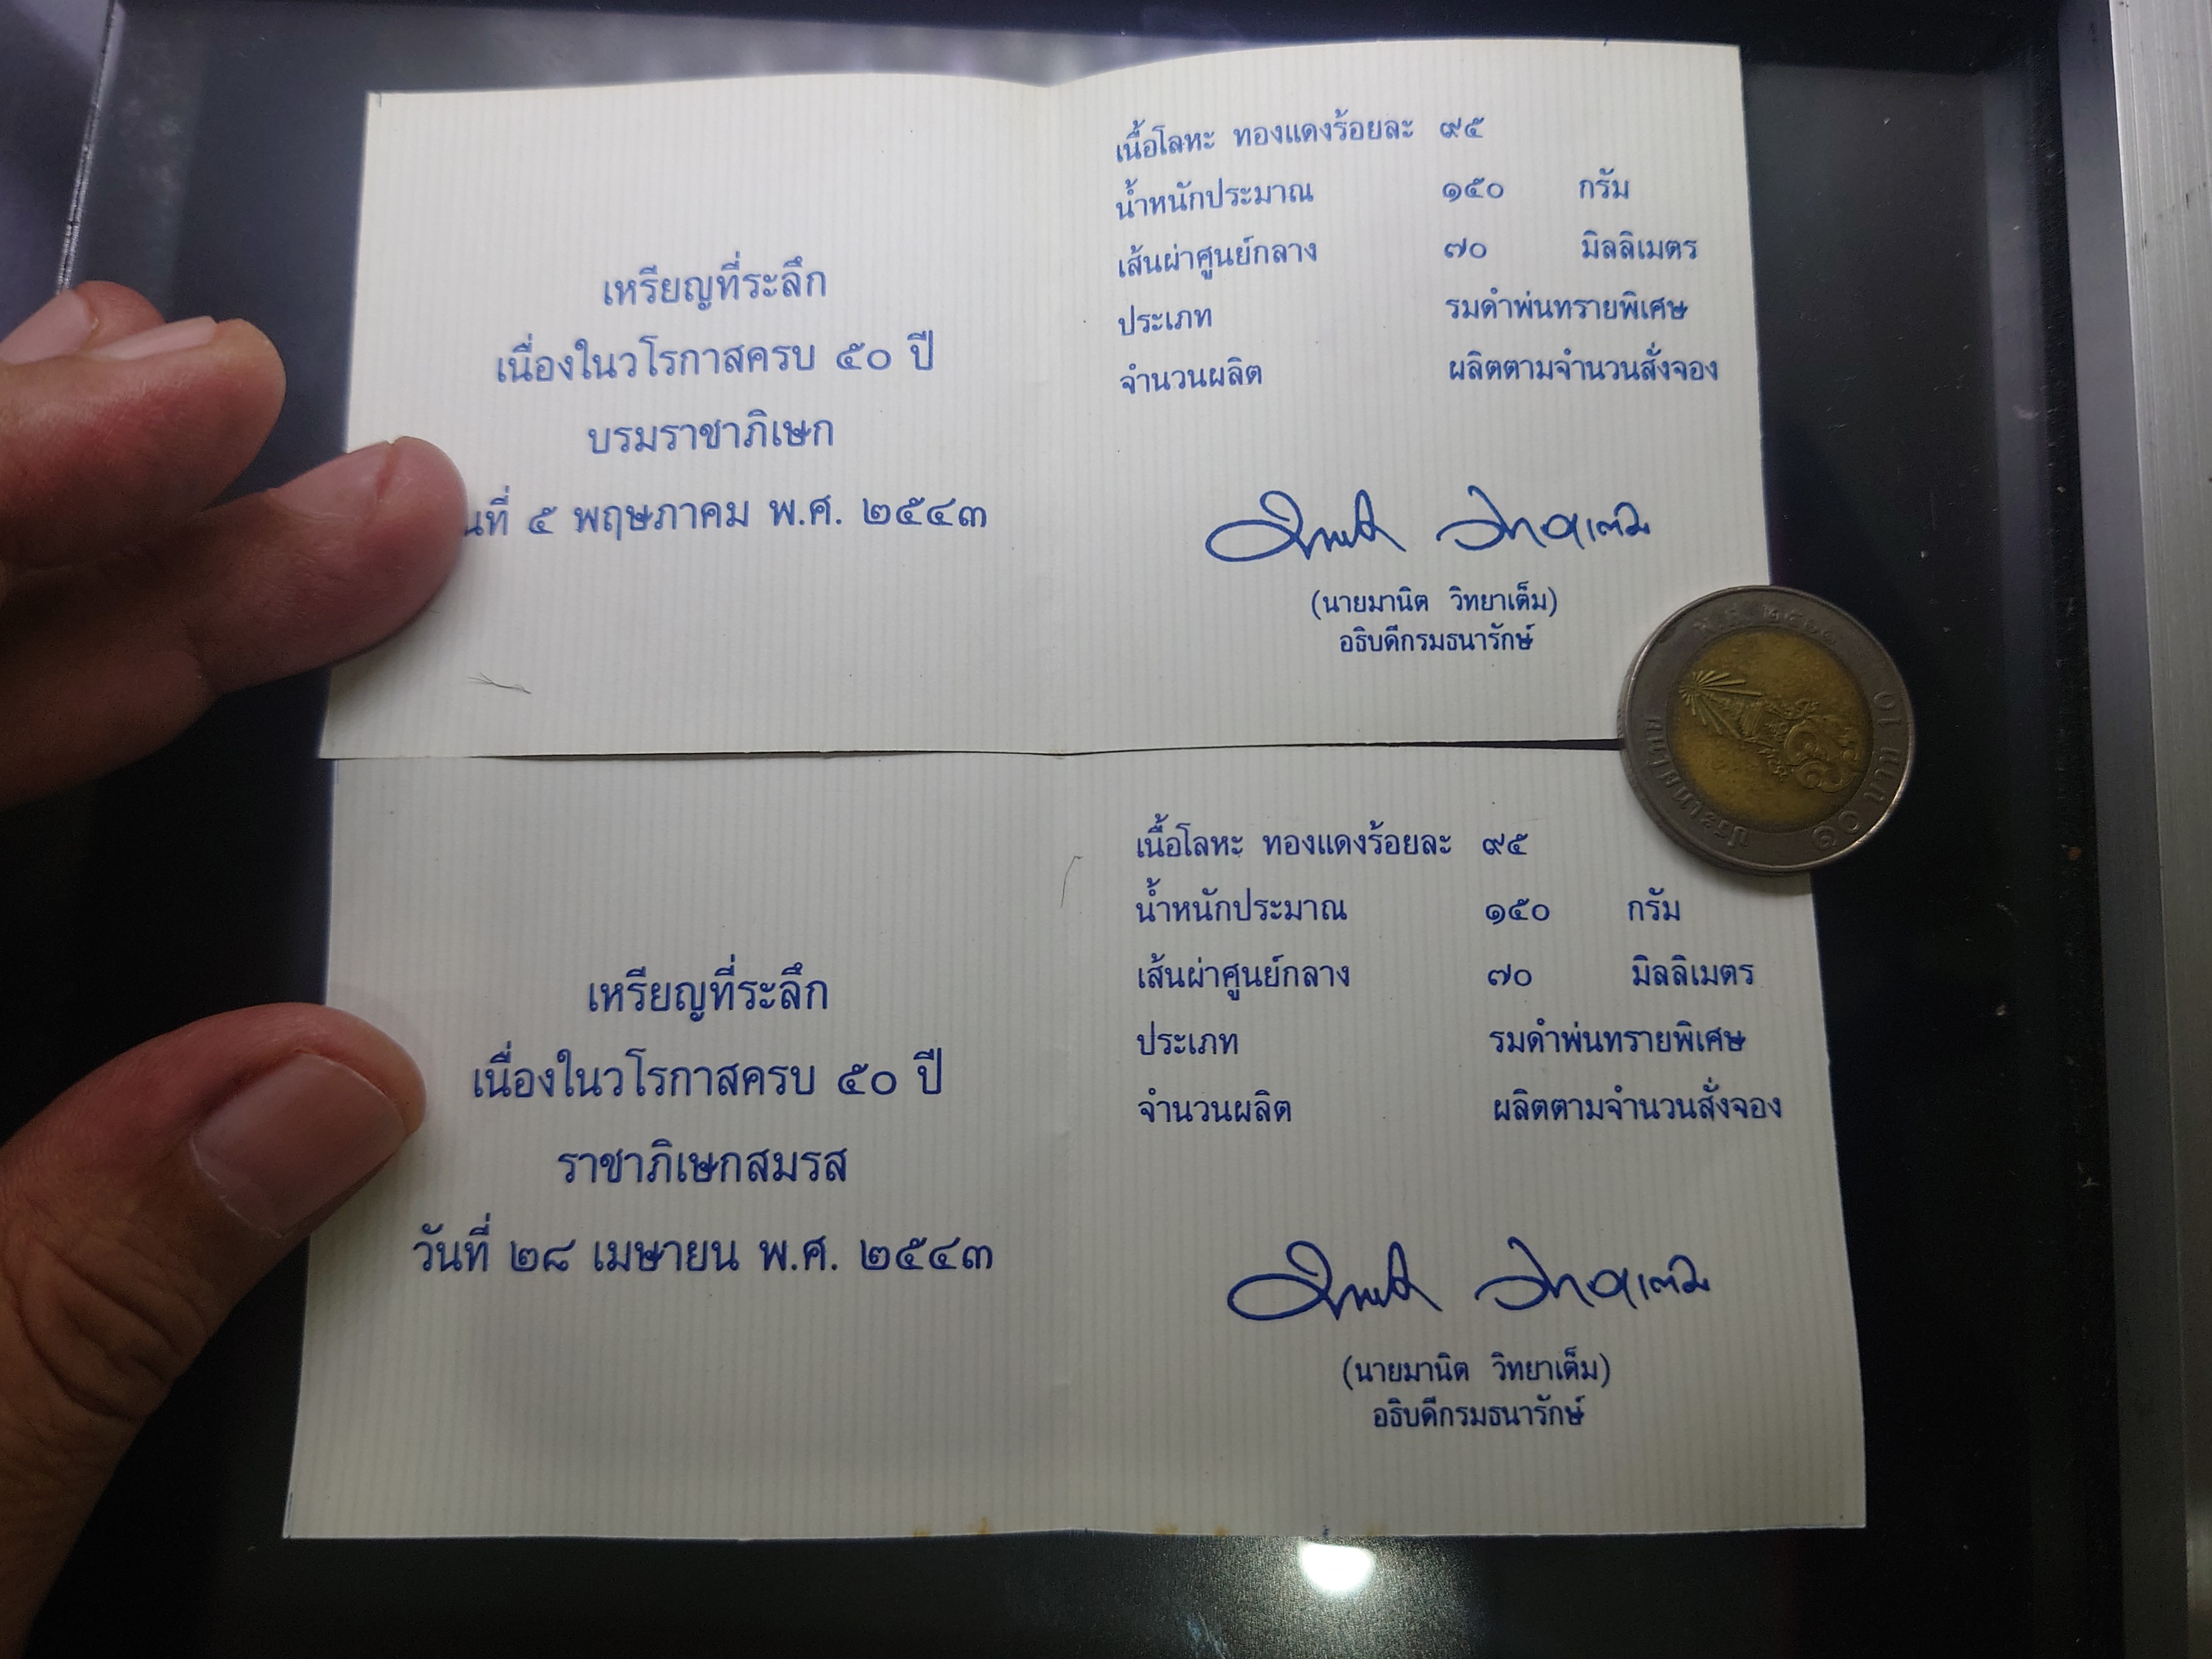 เหรียญที่ระลึก
เนื่องในวโรกาสครบ ๕๐ ปี
บรมราชาภิเษก
นที่ ๕ พฤษภาคม พ.ศ. ๒๕๔๓
เนื้อโลหะ ทองแดงร้อยละ ๙๕
น้ำหนักประมาณ ๑๕๐ กรัม
เส้นผ่าศูนย์กลาง ๗๐ มิลลิเมตร
ประเภท รมดำพ่นทรายพิเศษ
จำนวนผลิต ผลิตตามจำนวนสั่งจอง
(นายมานิต วิทยาเต็ม)
อธิบดีกรมธนารักษ์
ประเทศไทย
๑๐ บาท 10
เหรียญที่ระลึก
เนื่องในวโรกาสครบ ๕๐ ปี
ราชาภิเษกสมรส
วันที่ ๒๘ เมษายน พ.ศ. ๒๕๔๓
เนื้อโลหะ ทองแดงร้อยละ ๙๕
น้ำหนักประมาณ ๑๕๐ กรัม
เส้นผ่าศูนย์กลาง ๗๐ มิลลิเมตร
ประเภท รมดำพ่นทรายพิเศษ
จำนวนผลิต ผลิตตามจำนวนสั่งจอง
(นายมานิต วิทยาเต็ม)
อธิบดีกรมธนารักษ์